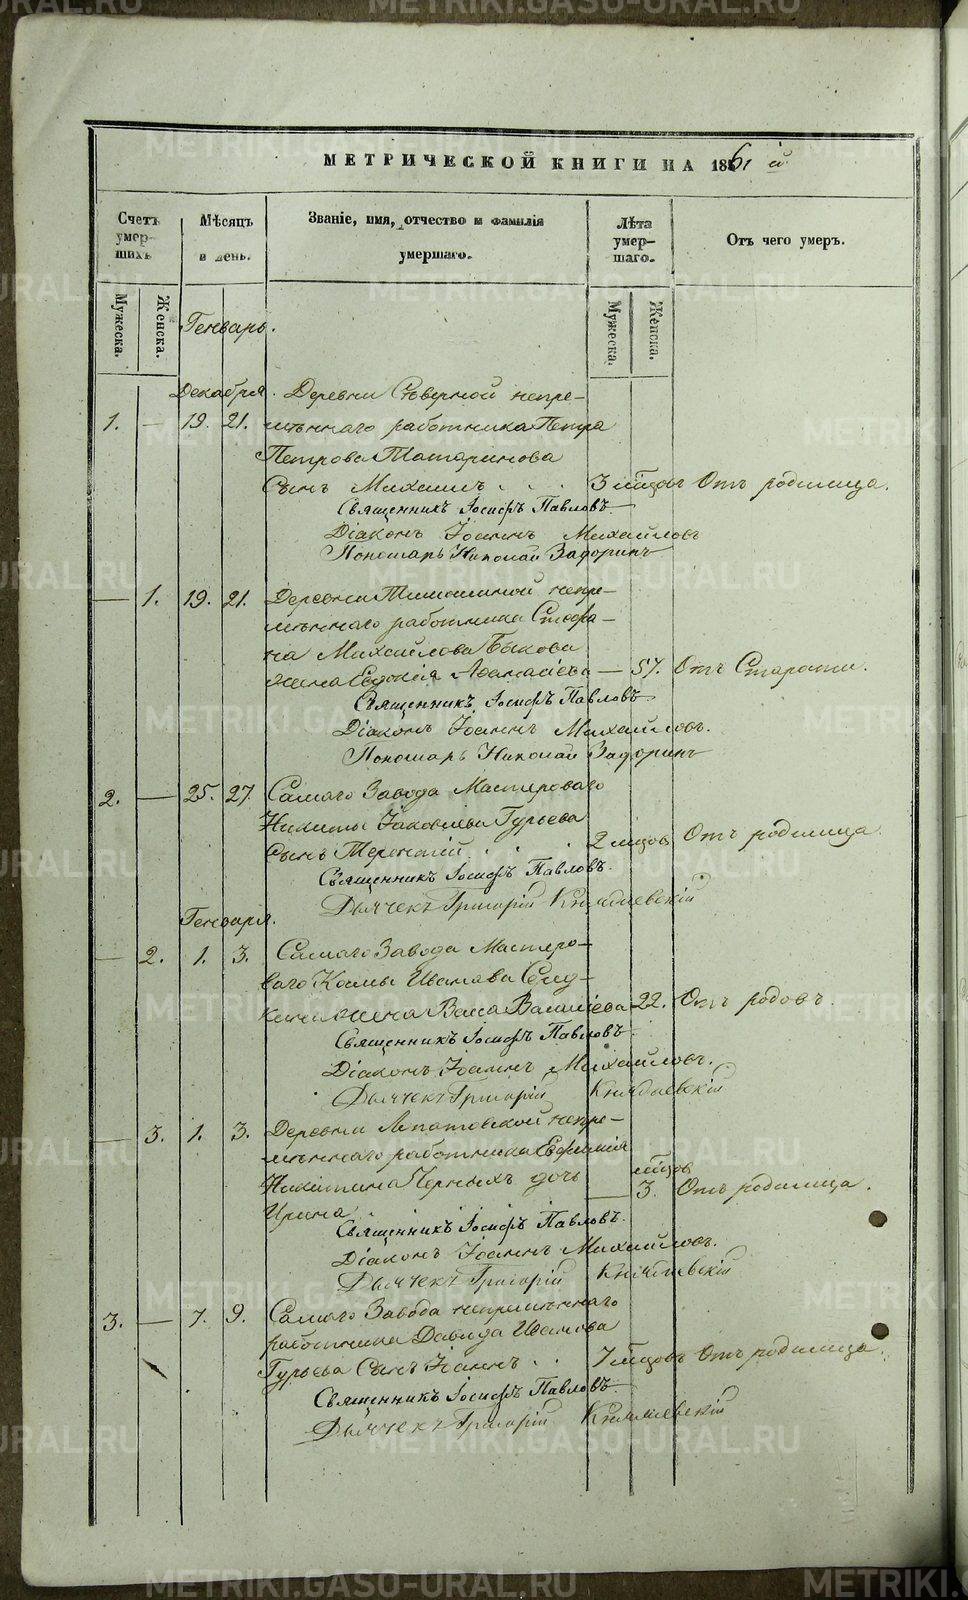 METRIKI.GASO-URAL.RU
МЕТРИЧЕСКОЙ КНИГИ НА 1861 й.
Счетъ умер-шихъ
Мѣсяцъ и день.
Званіе, имя, отчество и фамилія умершаго.
Лѣта умер-шаго.
Отъ чего умеръ.
Мужеска.
Женска.
Мужеска.
Женска.
Генварь.
Декабря. Деревни Сѣверной непре-
1. — 19. 21. мѣннаго работника Петра
Петрова Татаринова
Сынъ Михаилъ . . . 3 мѣсцовъ Отъ родимца.
Священникъ Іосифъ Павловъ
Діаконъ Іоаннъ Михайловъ
Пономарь Николай Задоринъ
— 1. 19. 21. Деревни непре-
мѣннаго работника Стефа-
на Михайлова Быкова
жена Евдокія Аѳанасіева — 57. Отъ Старости.
Священникъ Іосифъ Павловъ
Діаконъ Іоаннъ Михайловъ.
Пономарь Николай Задоринъ
2. — 25. 27. Самаго Завода Мастероваго
Никиты Іаковлева Гурьева
Сынъ Терентій . . . 2 мѣсцов Отъ родимца.
Священникъ Іосифъ Павловъ.
Дьячекъ Григорій
Генваря.
— 2. 1. 3. Самаго Завода Мастеро-
ваго Козмы Иванова
жена Васса Василіева 22. Отъ родовъ.
Священникъ Іосифъ Павловъ.
Діаконъ Іоаннъ Михайловъ.
Дьячекъ Григорій
— 3. 1. 3. Деревни Липатовской непре-
мѣннаго работника Евфимія
Никитина Черныхъ дочь мѣсцов
Ирина . . . — 3. Отъ родимца.
Священникъ Іосифъ Павловъ.
Діаконъ Іоаннъ Михайловъ.
Дьячекъ Григорій
3. — 7. 9. Самаго Завода непремѣннаго
работника Давида Иванова
Гурьева Сынъ Іоаннъ . . 7 мѣсцовъ Отъ родимца.
Священникъ Іосифъ Павловъ
Дьячекъ Григорій